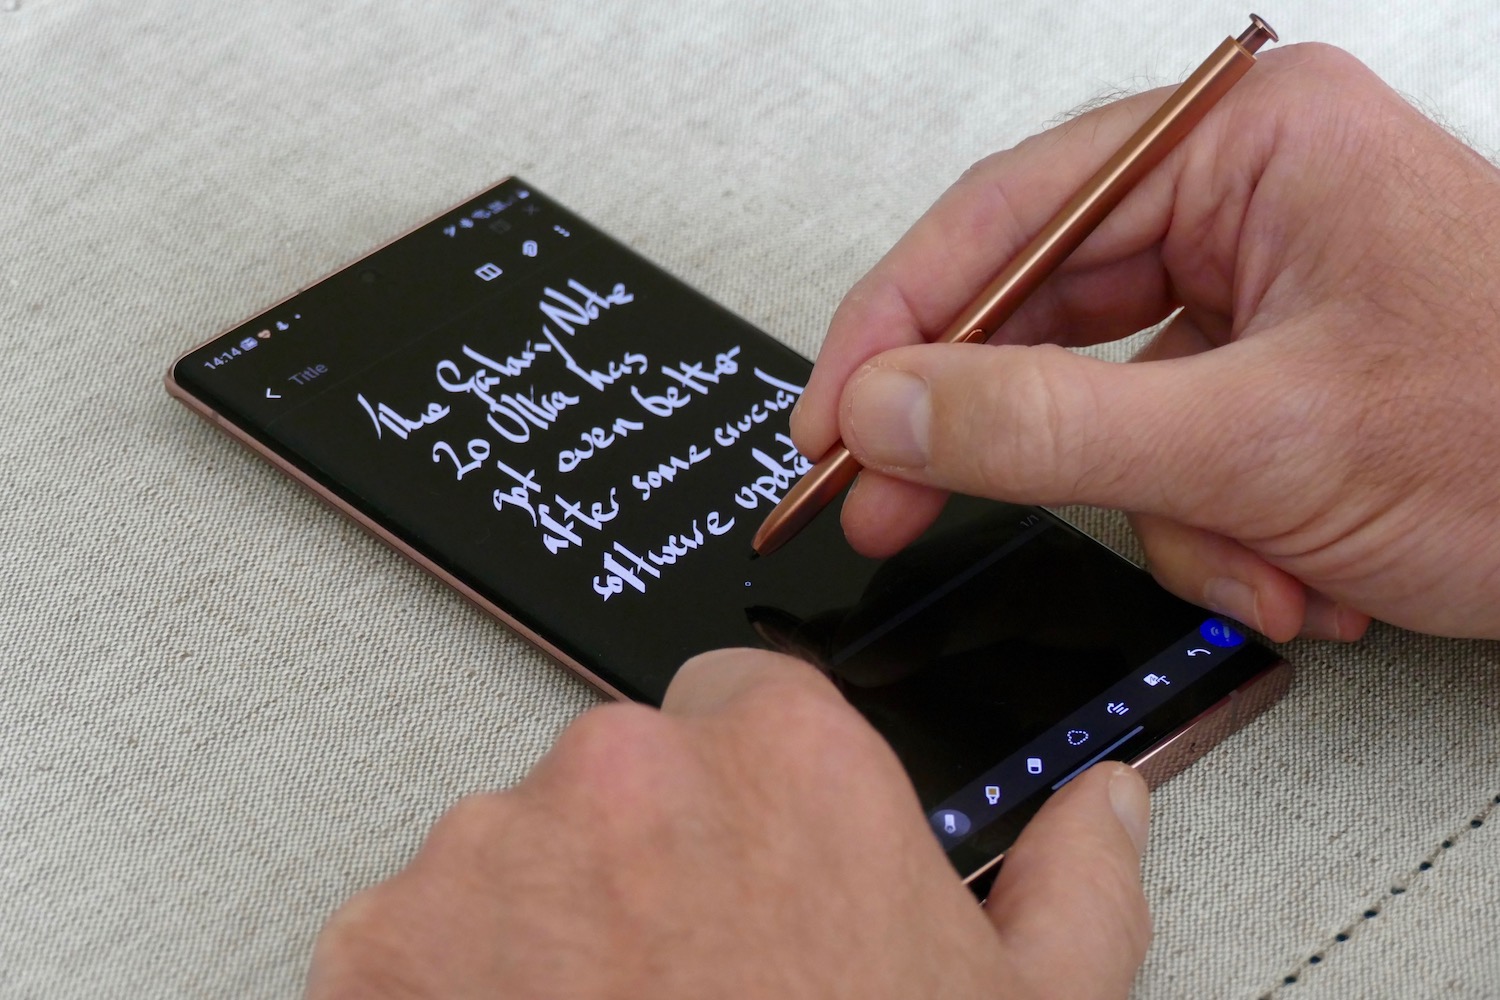 14:14
Title
The Galaxy Note
20 Ultra has
got even better
after some crucial
software updat
1/1